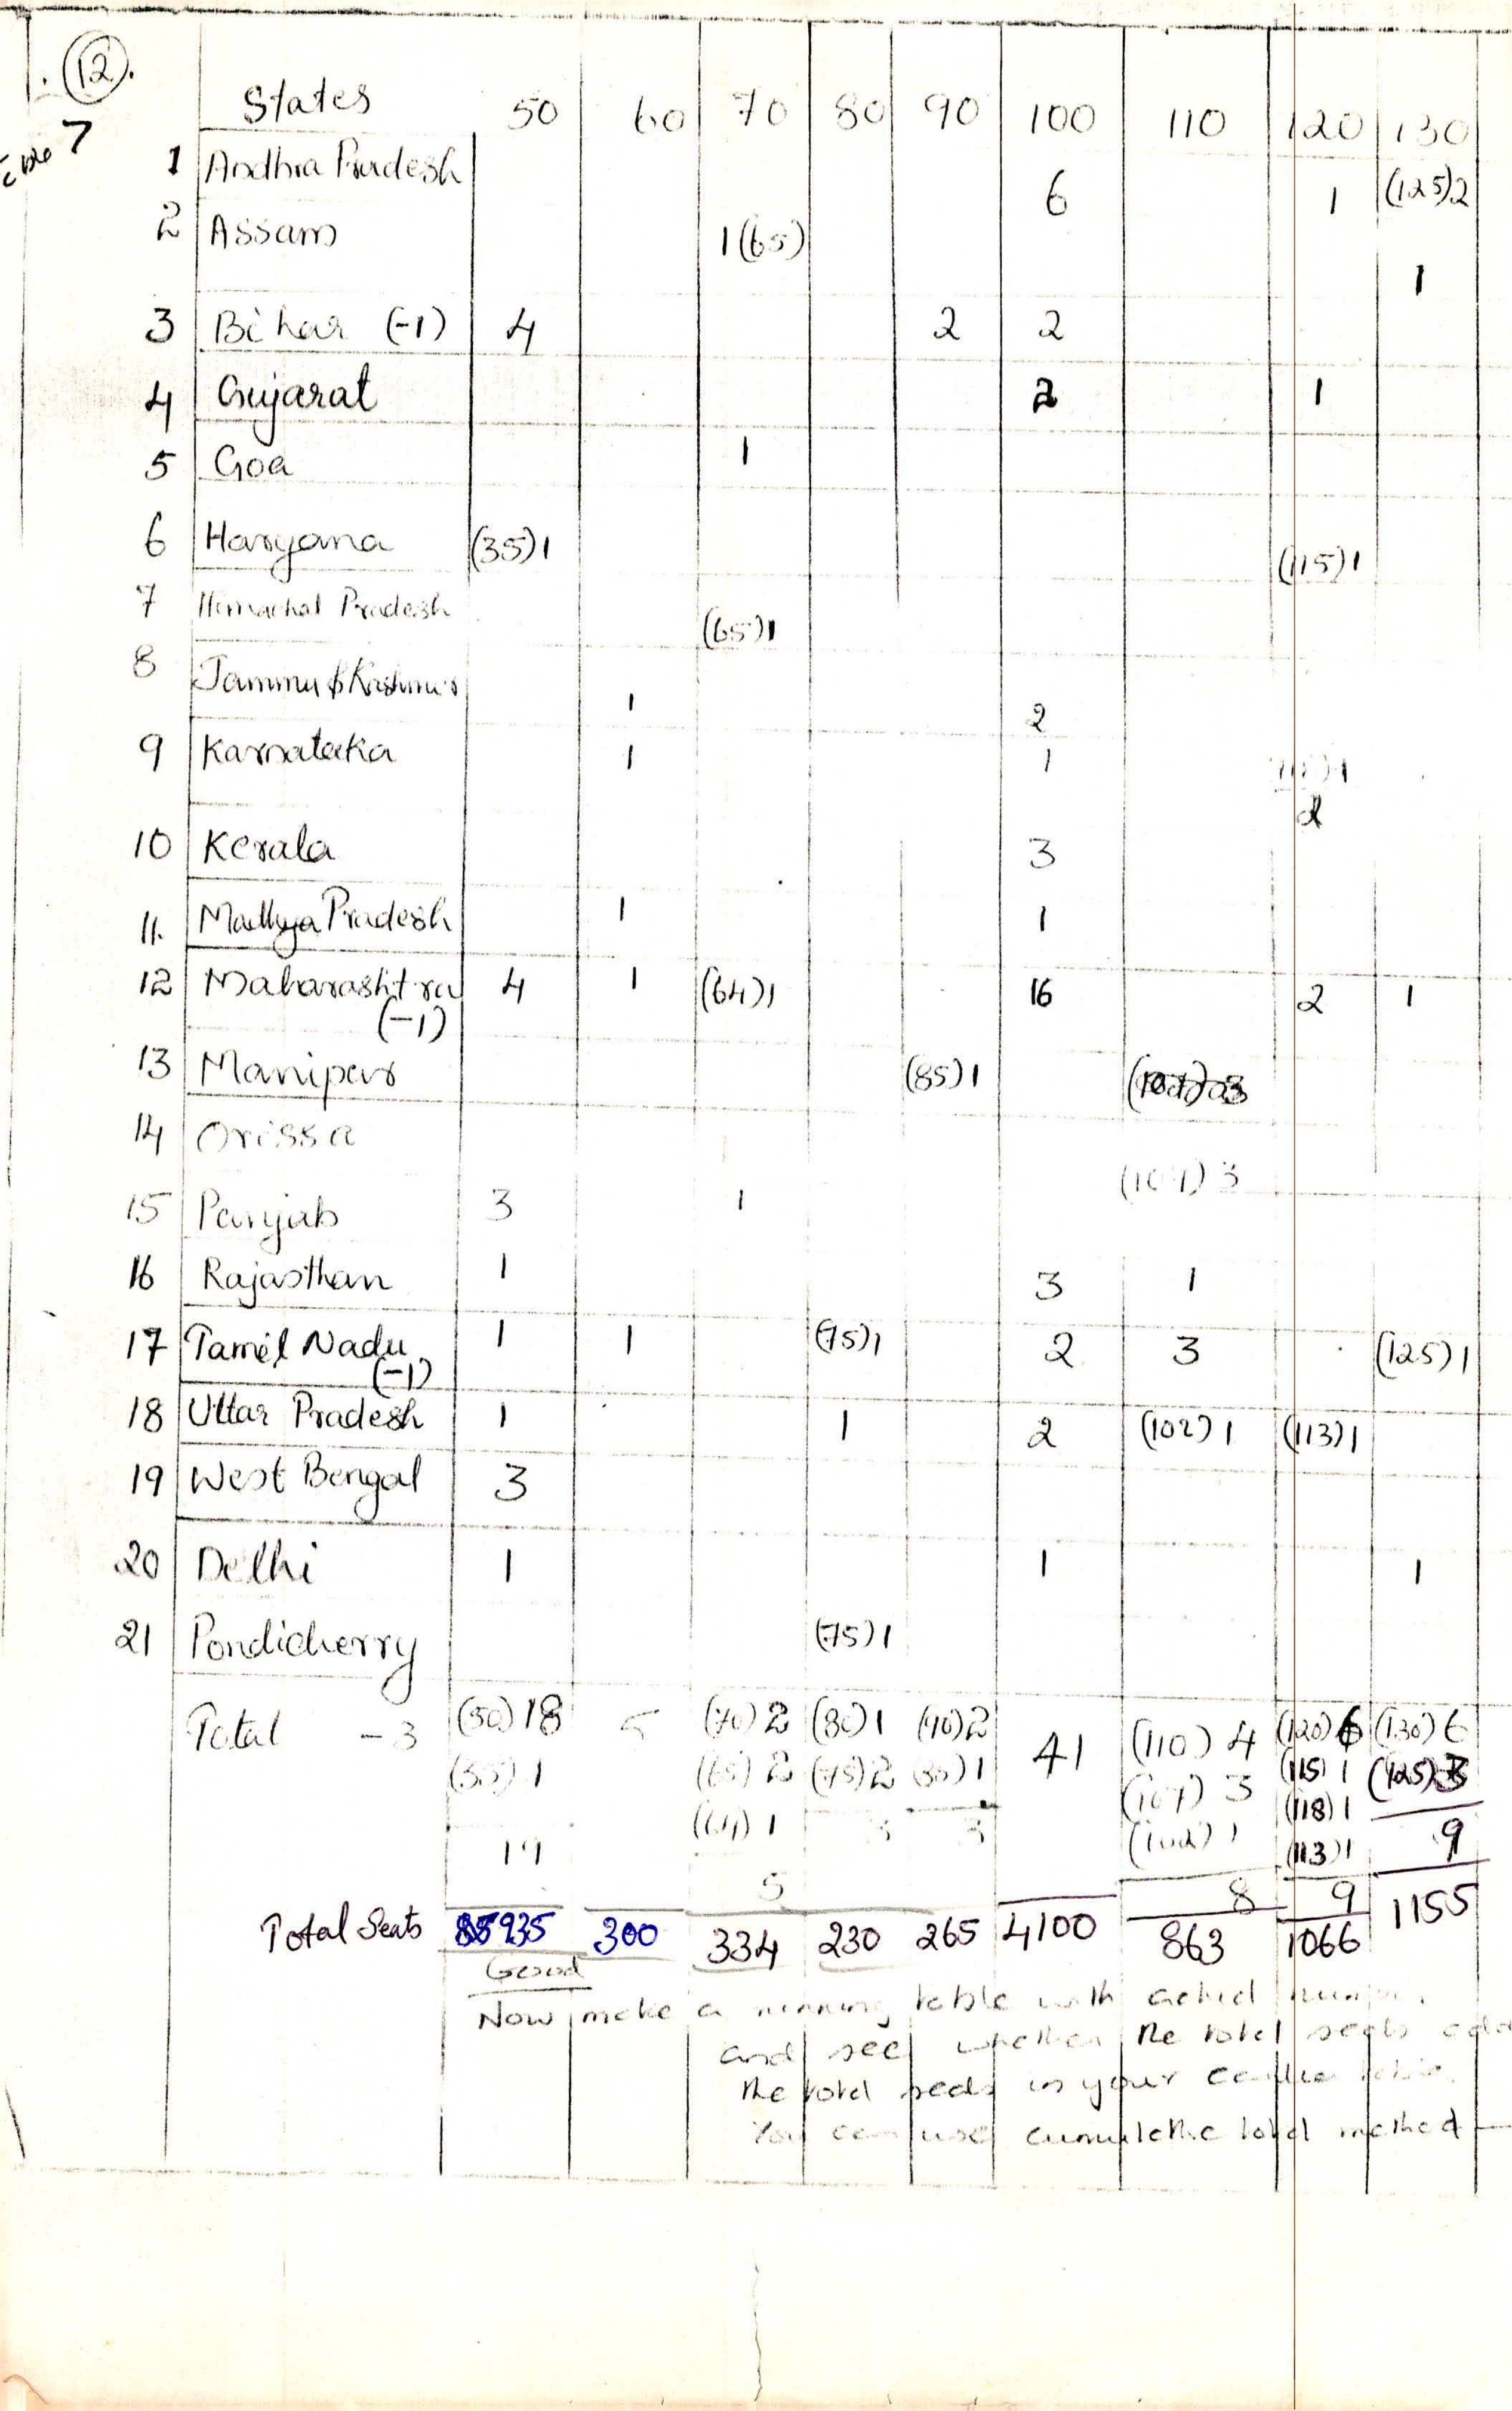 (12).
7
States 50 60 70 80 90 100 110 120 130
1 Andhra Pradesh 6 1 (125)2
2 Assam 1(65) 1
3 Bihar (-1) 4 2 2
4 Gujarat 2 1
5 Goa 1
6 Haryana (35)1 (115)1
7 Himachal Pradesh (65)1
8 Jammu & Kashmir 1 2
9 Karnataka 1 1 2
10 Kerala 3
11. Madhya Pradesh 1 1
12 Maharashtra (-1) 4 1 (64)1 16 2 1
13 Manipur (85)1
14 Orissa (107) 3
15 Punjab 3 1
16 Rajasthan 1 3 1
17 Tamil Nadu (-1) 1 1 (75)1 2 3 (125)1
18 Uttar Pradesh 1 1 2 (102)1 (113)1
19 West Bengal 3
20 Delhi 1 1 1
21 Pondicherry (75)1
Total -3 (50)18 5 (70)2 (80)1 (90)2 41 (110)4 (120)6 (130)6
(35)1 (65)2 (75)2 (85)1 (107)3 (115)1 (125)3
(64)1 3 3 (102)1 (118)1
19 (113)1 9
5 8 9
Total Seats 935 300 334 230 265 4100 863 1066 1155
Good
Now make a running table with actual
and see whether the total seats add
the total seats in your earlier
You can use cumulative total method